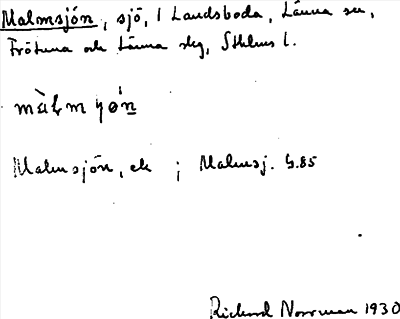 Malmsjön, sjö, i Landsboda, Länna sn,
Frötuna och Länna skg, Sthlms l.
Malmsjön, ek ; Malmsj. G.85
Richard Norrman 1930